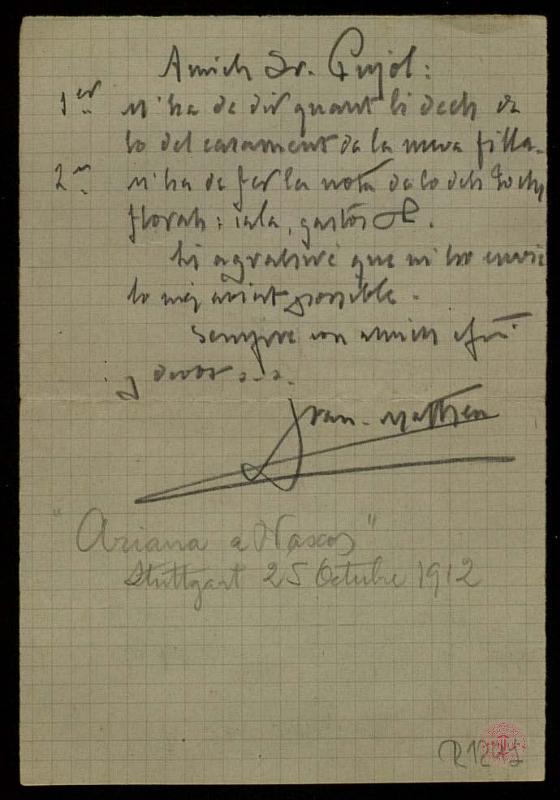 Amich Sr. Pujol:
1er M'ha de dir quant li dech da
lo del casament de la meva filla.
2n M'ha de fer la nota de lo dels Jochs
florals: sala, gastos &.
Li agrahiré que m'ho envie
lo mes aviat possible.
Sempre son amich
y devot s.s.
Fran. Matheu
"Ariana a Naxos"
Stuttgart 25 Octubre 1912